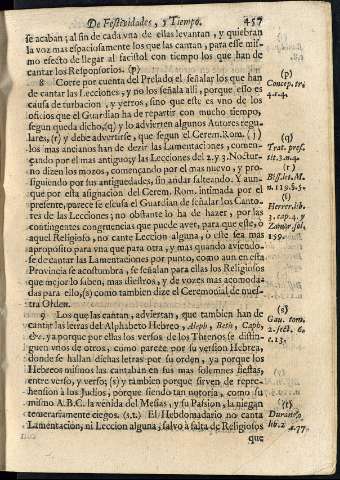 De Festividades, y Tiempo. 457
se acaban; al fin de cada vna de ellas levantan, y quiebran
la voz mas espaciosamente los que las cantan, para esse mis-
mo efecto de llegar al facistol con tiempo los que han de
cantar los Responsorios. (p)
8 Corre por cuenta del Prelado el señalar los que han
de cantar las Lecciones, y no los señala alli, porque esso es
causa de turbacion, y yerros, sino que este es vno de los
oficios que el Guardian ha de repartir con mucho tiempo,
segun queda dicho, (q) y lo advierten algunos Autores regu-
lares, (r) y debe advertirse, que segun el Cerem. Rom. (s)
los mas ancianos han de dezir las Lamentaciones, comen-
çando por el mas antiguo; y las Lecciones del 2. y 3. Noctur-
no dizen los mozos, començando por el mas nuevo, y pro-
siguiendo por sus antiguedades, sin andar salteando. Y aun-
que por esta asignacion del Cerem. Rom. intimada por el
presente, parece se escusa el Guardian de señalar los Canto-
res de las Lecciones; no obstante lo ha de hazer, por las
contingentes congruencias que puede aver, para que este, ò
aquel Religioso, no cante Leccion alguna, ò este sea mas
aproposito para vna que para otra, y mas quando aviendo-
se de cantar las Lamentaciones por punto, como aun en esta
Provincia se acostumbra, se señalan para ellas los Religiosos
que mejor lo saben, mas diestros, y de vozes mas acomoda-
das para ello, (s) como tambien dize el Ceremonial de nues-
tra Orden.
9 Los que las cantan, adviertan, que tambien han de
cantar las letras del Alphabeto Hebreo, Aleph, Beth, Caph,
&c. ya porque por ellas los versos de los Threnos se distin-
guen vnos de otros, como parece por su version Hebrea,
donde se hallan dichas letras por su orden, ya porque los
Hebreos mismos las cantaban en sus mas solemnes fiestas,
entre verso, y verso; (s) y tambien porque sirven de repre-
hension à los Judios, porque siendo tan notoria, como su
mismo A.B.C. la venida del Mesias, y su Passion, la niegan
temerariamente ciegos. (s.t.) El Hebdomadario no canta
Lamentacion, ni Leccion alguna, salvo à falta de Religiosos
que
(p)
Concep. tri
4. 1. 4.
(q)
Trat. pref.
tit. 3. n. 4.
(r)
Bissi lit. M.
n. 119. §. 5.
(s)
Herrer. lib.
3. cap. 4. y
159.
(s)
Gau. tom.
2. sect. 6.
c. 13.
(t)
Durando,
lib. 2
4. 77.